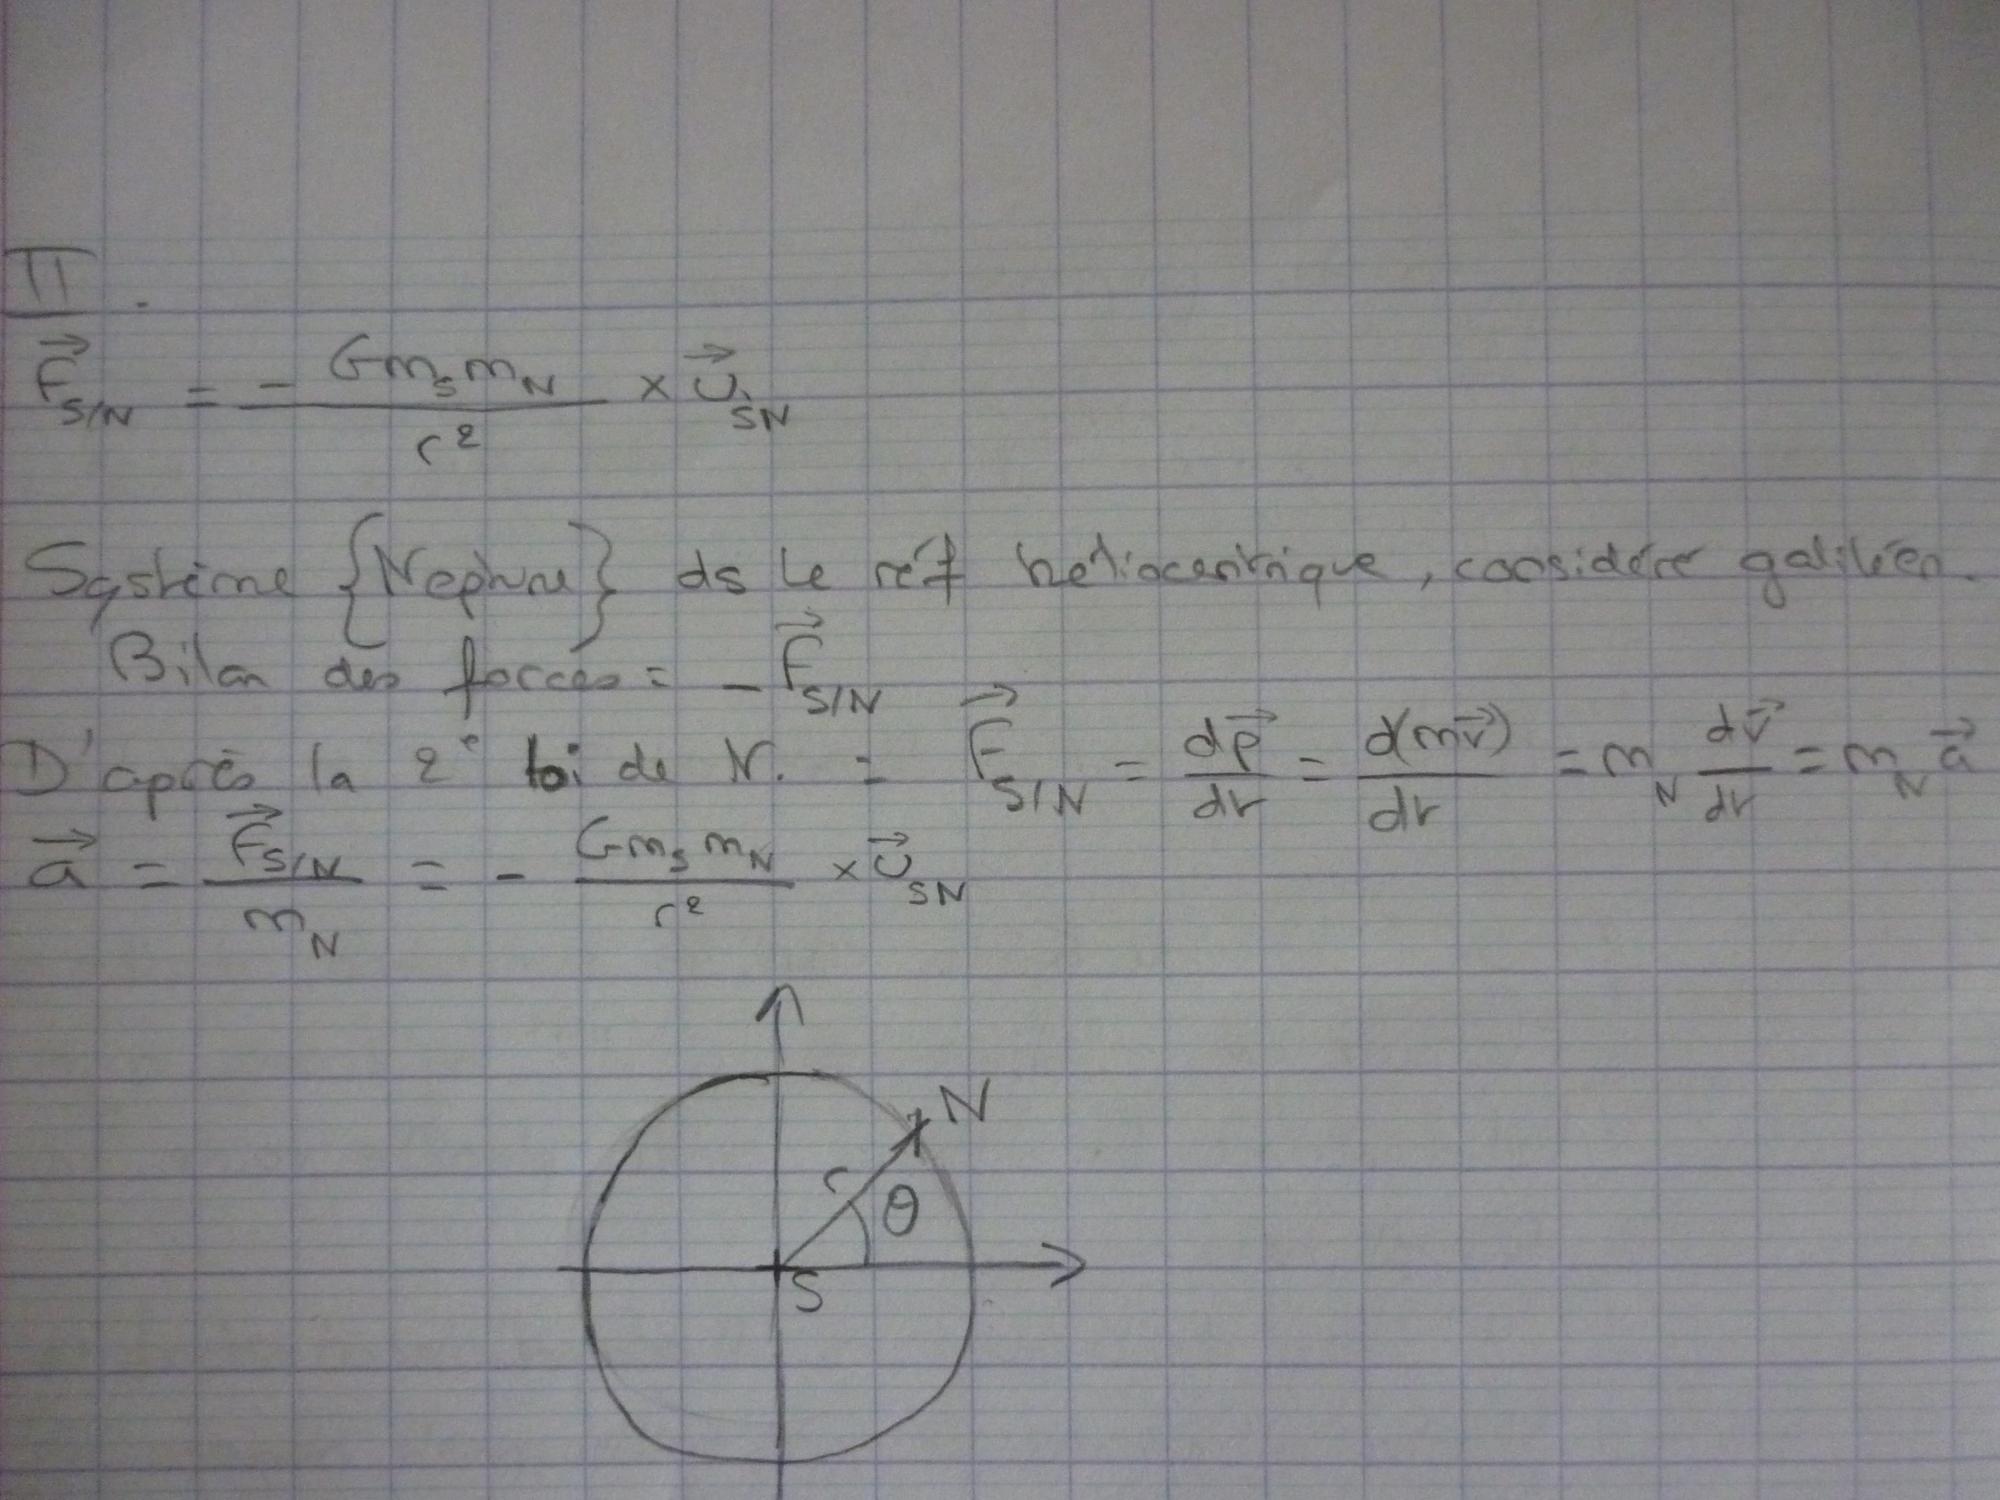 II.
F⃗_S/N = - G m_S m_N / r² × u⃗_SN
Système {Neptune} ds le réf héliocentrique, considéré galiléen.
Bilan des forces = - F⃗_S/N
D'après la 2° loi de N. = F⃗_S/N = dp⃗/dt = d(mv⃗)/dt = m_N dv⃗/dt = m_N a⃗
a⃗ = F⃗_S/N / m_N = - G m_S m_N / r² × u⃗_SN
N
r
θ
S